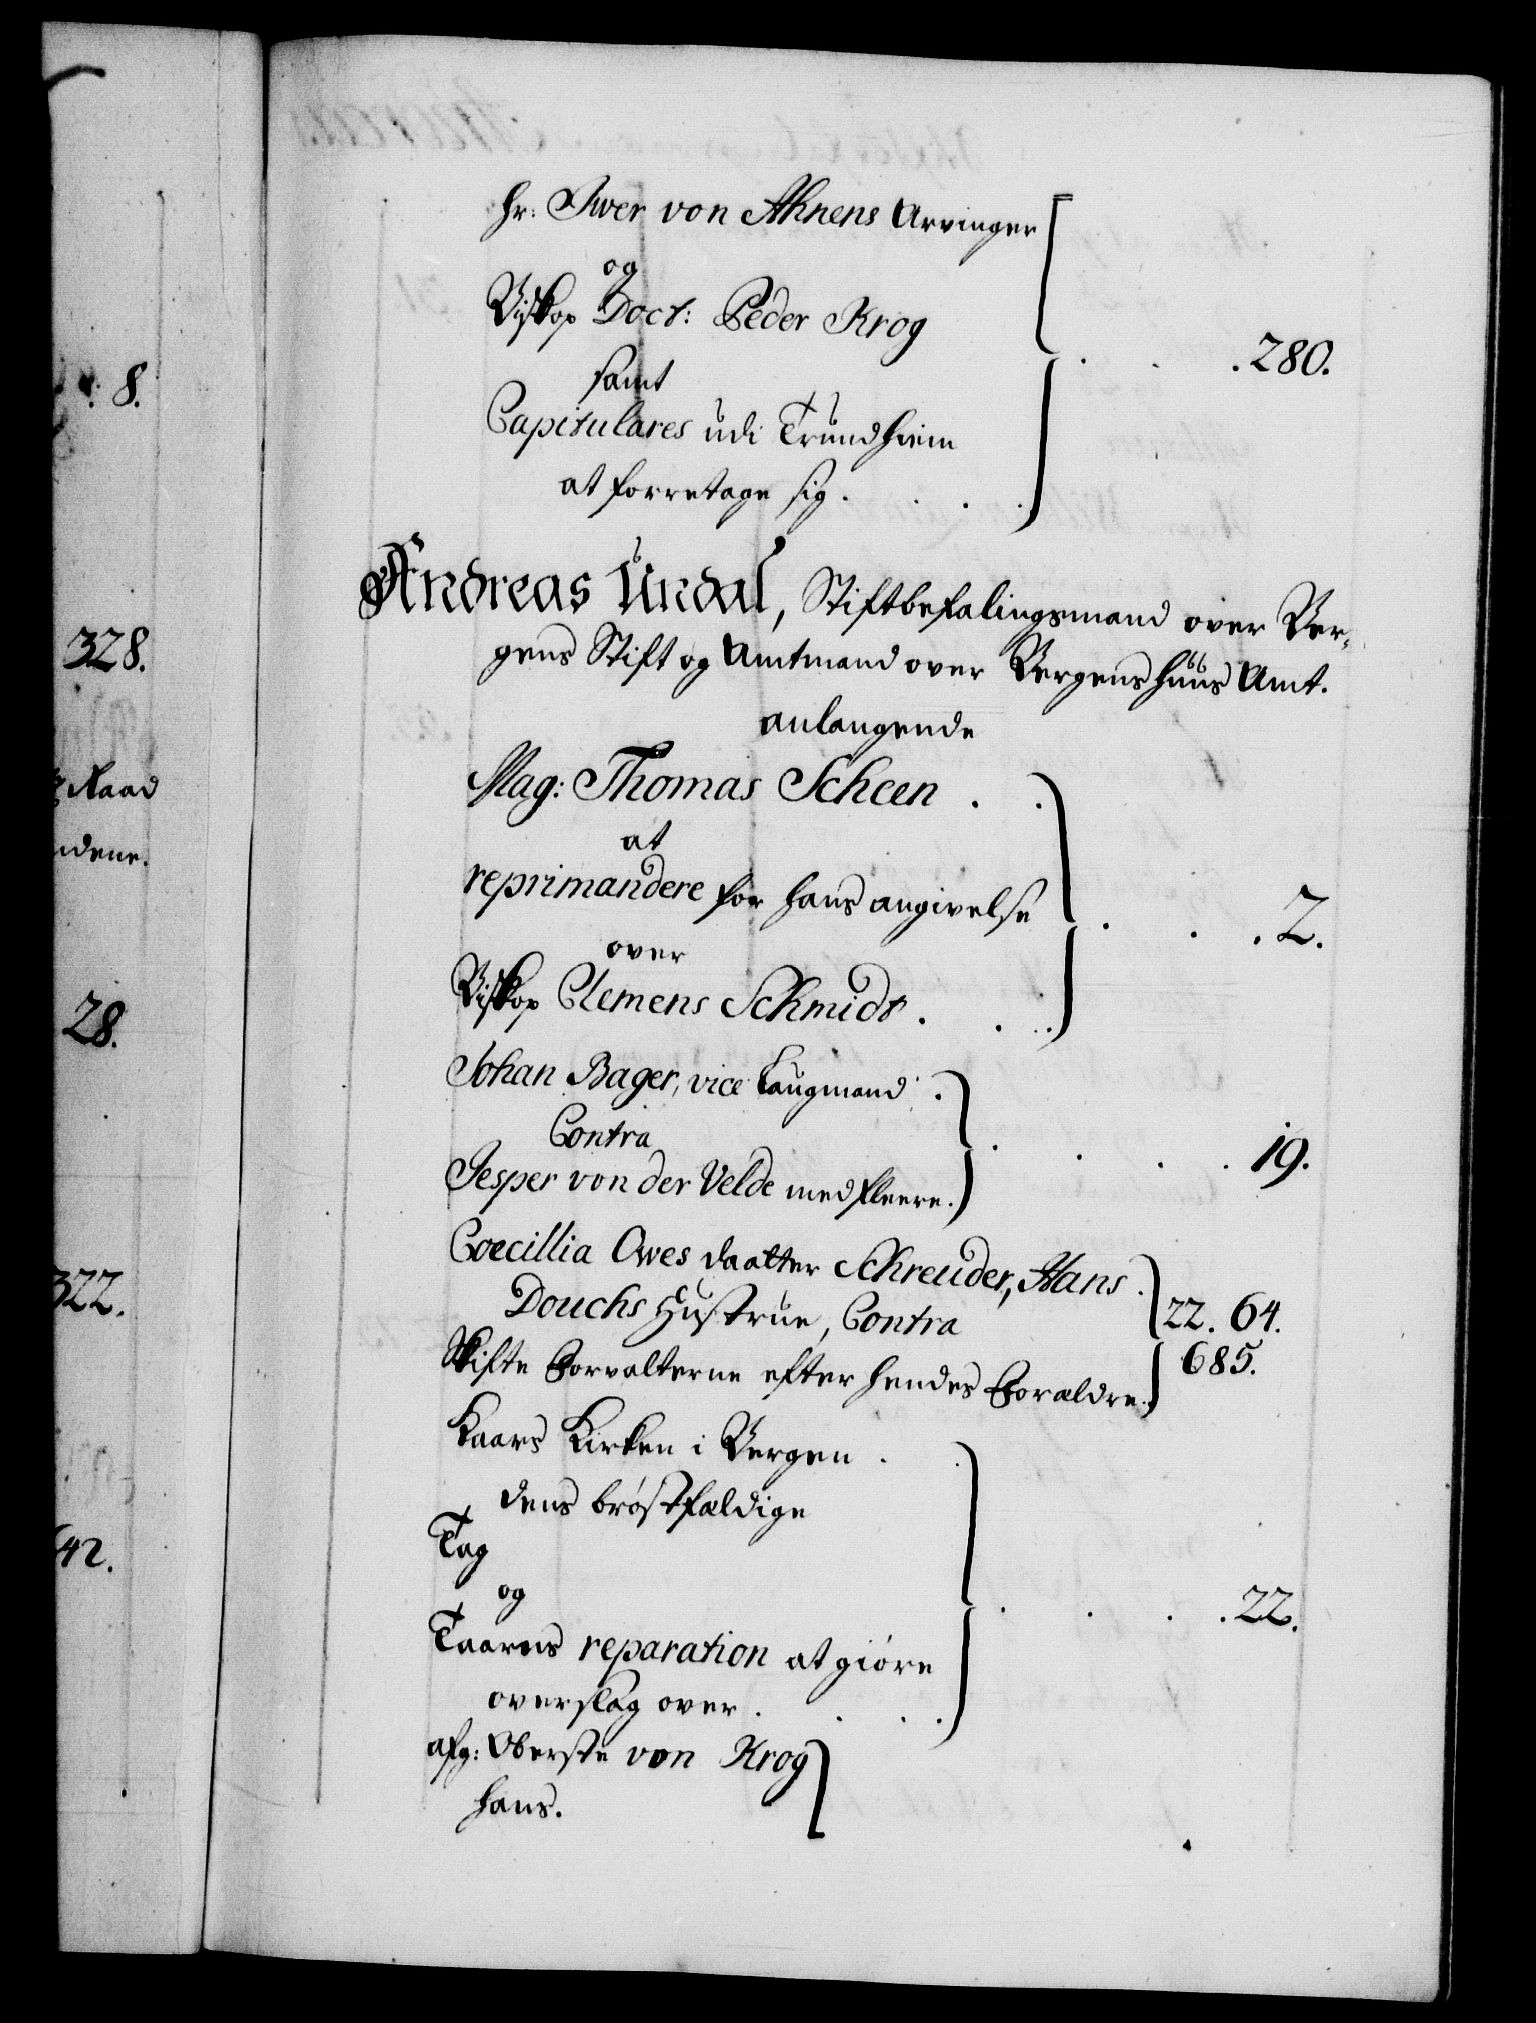 8.
328.
Raad
28.
322.
42.
hr: Iwer von Ahnens Arvinger
og
Biskop Doct: Peder Krog
samt
Capitulares udi Trundhiem
at forretage sig . . . 280.
Andreas Undal, Stiftbefalingsmand over Ber-
gens Stift og Amtmand over Bergenshuus Amt.
anlangende
Mag: Thomas Scheen . .
at
reprimandere for hans angivelse . . . 2.
over
Biskop Clemens Schmidt . . .
Johan Bager, vice Laugmand .
Contra . . . . 19.
Jesper von der Velde med fleere.
Coecillia Owes daatter Schreuder, Hans .
Douchs Hustrue, Contra 22. 64.
Skifte Forvalterne efter hendes Forældre. 685.
Kaars Kirken i Bergen . .
dens brøstfældige
Tag
og . . . . 22.
Taarns reparation at giøre
overslag over . . . .
afg: Oberste von Krog
hans.